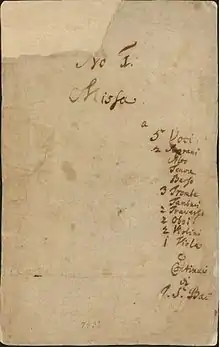 No I.
Missa.
a
5 Voci.
2 Soprani
Alto
Tenore
Basso
3 Trombe
Tamburi
2 Traversi
2 Oboi
2 Violini
1 Viola
e
Continuo
di
J. S. Bach